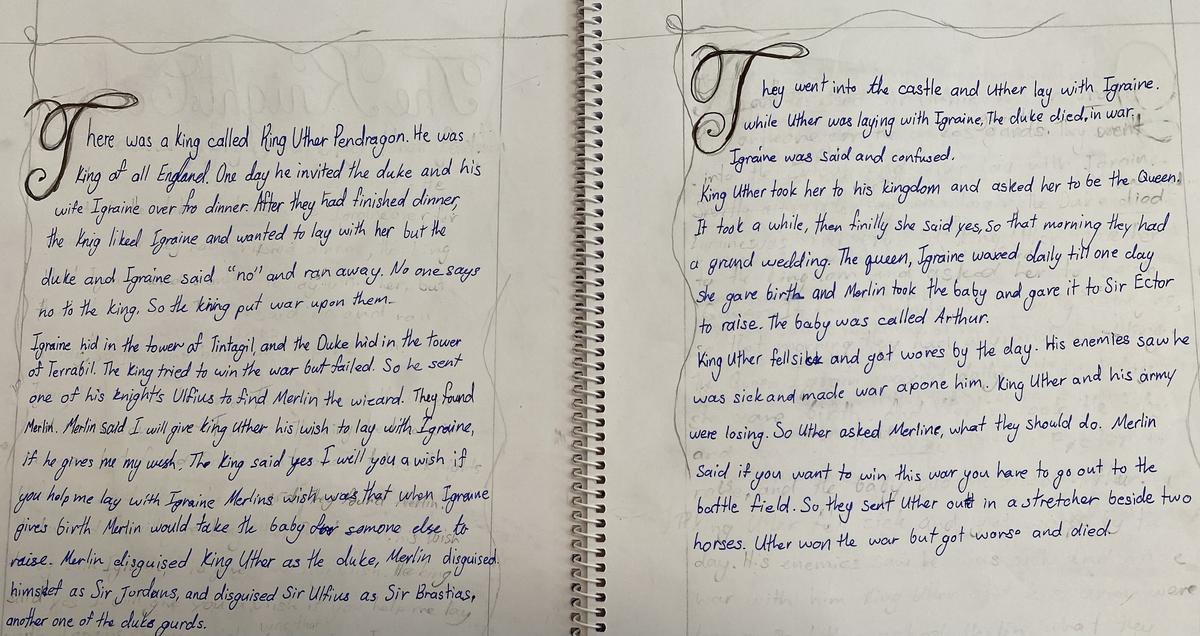 There was a king called King Uther Pendragon. He was
King of all England. One day he invited the duke and his
wife Igraine over fro dinner. After they had finished dinner,
the Knig liked Igraine and wanted to lay with her but the
duke and Igraine said "no" and ran away. No one says
no to the king. So the kning put war upon them.
Igraine hid in the tower of Tintagil, and the Duke hid in the tower
of Terrabil. The King tried to win the war but failed. So he sent
one of his knights Ulfius to find Merlin the wizard. They found
Merlin. Merlin said I will give King Uther his wish to lay with Igraine,
if he gives me my wish. The King said yes I will you a wish if
you help me lay with Igraine Merlins wish was that when Igraine
gives birth Merlin would take the baby for somone else to
raise. Merlin disguised King Uther as the duke, Merlin disguised
himself as Sir Jordans, and disguised Sir Ulfius as Sir Brastias,
another one of the duks gurds.
They went into the castle and Uther lay with Igraine.
while Uther was laying with Igraine, The duke died, in war.
Igraine was said and confused.
King Uther took her to his kingdom and asked her to be the Queen.
It took a while, then finilly she said yes, so that morning they had
a grand wedding. The queen, Igraine waxed daily till one day
she gave birth and Merlin took the baby and gave it to Sir Ector
to raise. The baby was called Arthur.
King Uther fell sick and got wores by the day. His enemies saw he
was sick and made war apone him. King Uther and his army
were losing. So Uther asked Merline, what they should do. Merlin
said if you want to win this war you have to go out to the
battle field. So, they sent Uther out in a stretcher beside two
horses. Uther won the war but got worse and died.